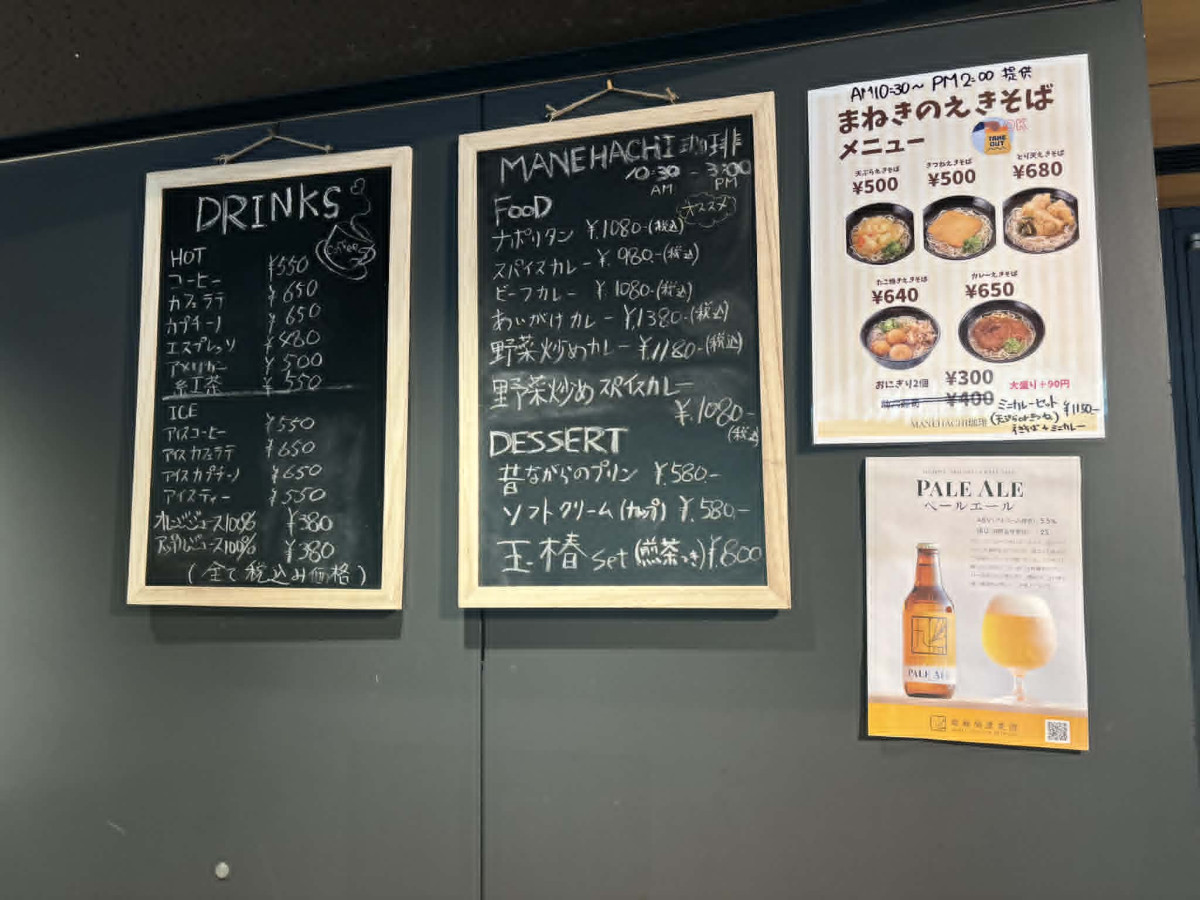 DRINKS
coffee
HOT
コーヒー ¥550
カフェラテ ¥650
カプチーノ ¥650
エスプレッソ ¥480
アメリカーノ ¥500
紅茶 ¥550
ICE
アイスコーヒー ¥550
アイスカフェラテ ¥650
アイスカプチーノ ¥650
アイスティー ¥550
オレンジジュース100% ¥380
アップルジュース100% ¥380
(全て税込み価格)
MANEHACHI珈琲
10:30 - 3:00
AM PM
FOOD
オススメ
ナポリタン ¥.1080-(税込)
スパイスカレー ¥.980-(税込)
ビーフカレー ¥.1080-(税込)
あいがけカレー ¥.1380-(税込)
野菜炒めカレー ¥1180-(税込)
野菜炒めスパイスカレー
¥.1080-
(税込)
DESSERT
昔ながらのプリン ¥.580-
ソフトクリーム(カップ) ¥.580-
玉椿set(煎茶つき)¥.800
AM10:30~PM2:00 提供
まねきのえきそば
メニュー
TAKE OUT
OK
天ぷらえきそば
¥500
きつねえきそば
¥500
とり天えきそば
¥680
たこ焼きえきそば
¥640
カレーえきそば
¥650
おにぎり2個 ¥300
大盛り+90円
¥400
ミニカレーセット ¥1150-
(天ぷらorきつね)
えきそば+ミニカレー
MANEHACHI珈琲
PALE ALE
ペールエール
PALE ALE